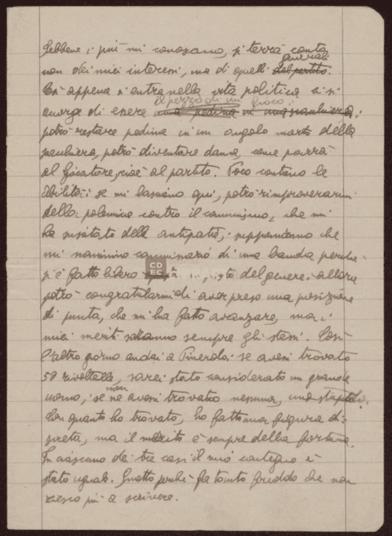 Sebbene i più mi conoscano, si terrà conto
non dei miei interessi, ma di quelli generali del partito.
Così appena si entra nella vita politica e si
accetta di essere un pezzo di un gioco: una pedina in una scacchiera:
potrò restare pedina in un angolo morto della
scacchiera, potrò diventare dama, come parrà
al giocatore, cioè al partito. Poco contano le
abilità: se mi lasciano qui, potrò rimproverarmi
della polemica contro il comunismo, che mi
ha suscitato delle antipatie; supponiamo che
mi nominino commissario di una banda perché
si è fatto libero un posto del genere: allora
potrò congratularmi di aver preso una posizione
di punta, che mi ha fatto avanzare, ma i
miei meriti saranno sempre gli stessi. Così
l'altro giorno andai a Pinerolo: se avessi trovato
50 rivoltelle, sarei stato considerato un grande
uomo, se non ne avessi trovato nessuna, uno stupido.
Con quanto ho trovato, ho fatto una figura
discreta, ma il merito è sempre della fortuna.
In ciascuno dei tre casi il mio contegno è
stato uguale. Smetto perché fa tanto freddo che non
riesco più a scrivere.
CDEC